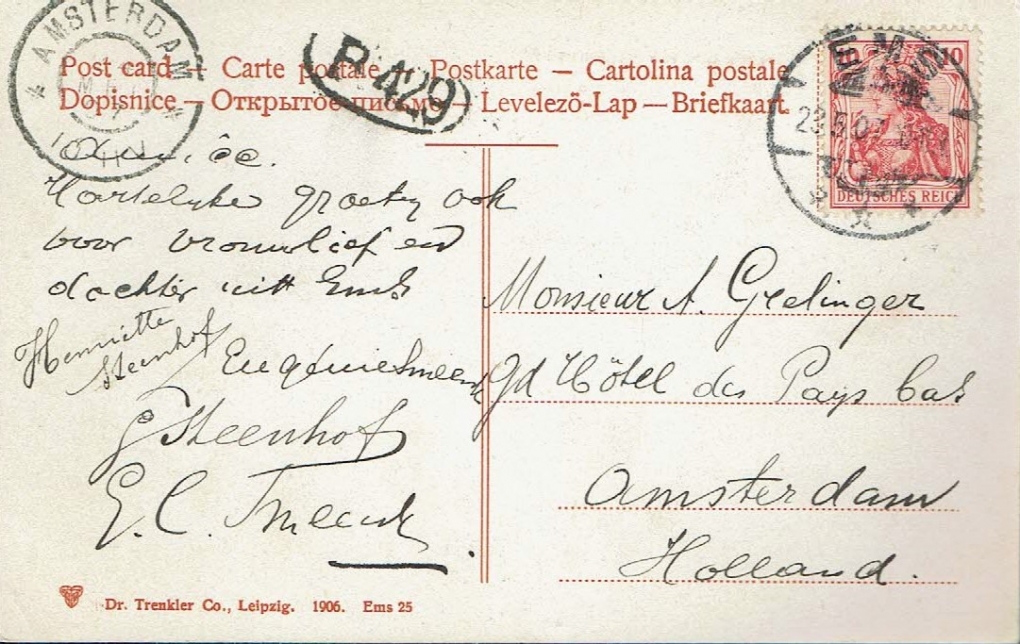 Post card — Carte postale — Postkarte — Cartolina postale
Dopisnice — Открытое письмо — Levelező-Lap — Briefkaart.
* AMSTERDAM *
P 429
10
EMS
DEUTSCHES REICH
Hartelyke groeten ook
voor vrouwlief en
dochter uit Ems
Henriette
Steenhof
Eugenie Smeenk
G Steenhof
E. C. Smeenk
Monsieur A. Grelinger
Gd Hôtel des Pays bas
Amsterdam
Holland.
Dr. Trenkler Co., Leipzig. 1906. Ems 25